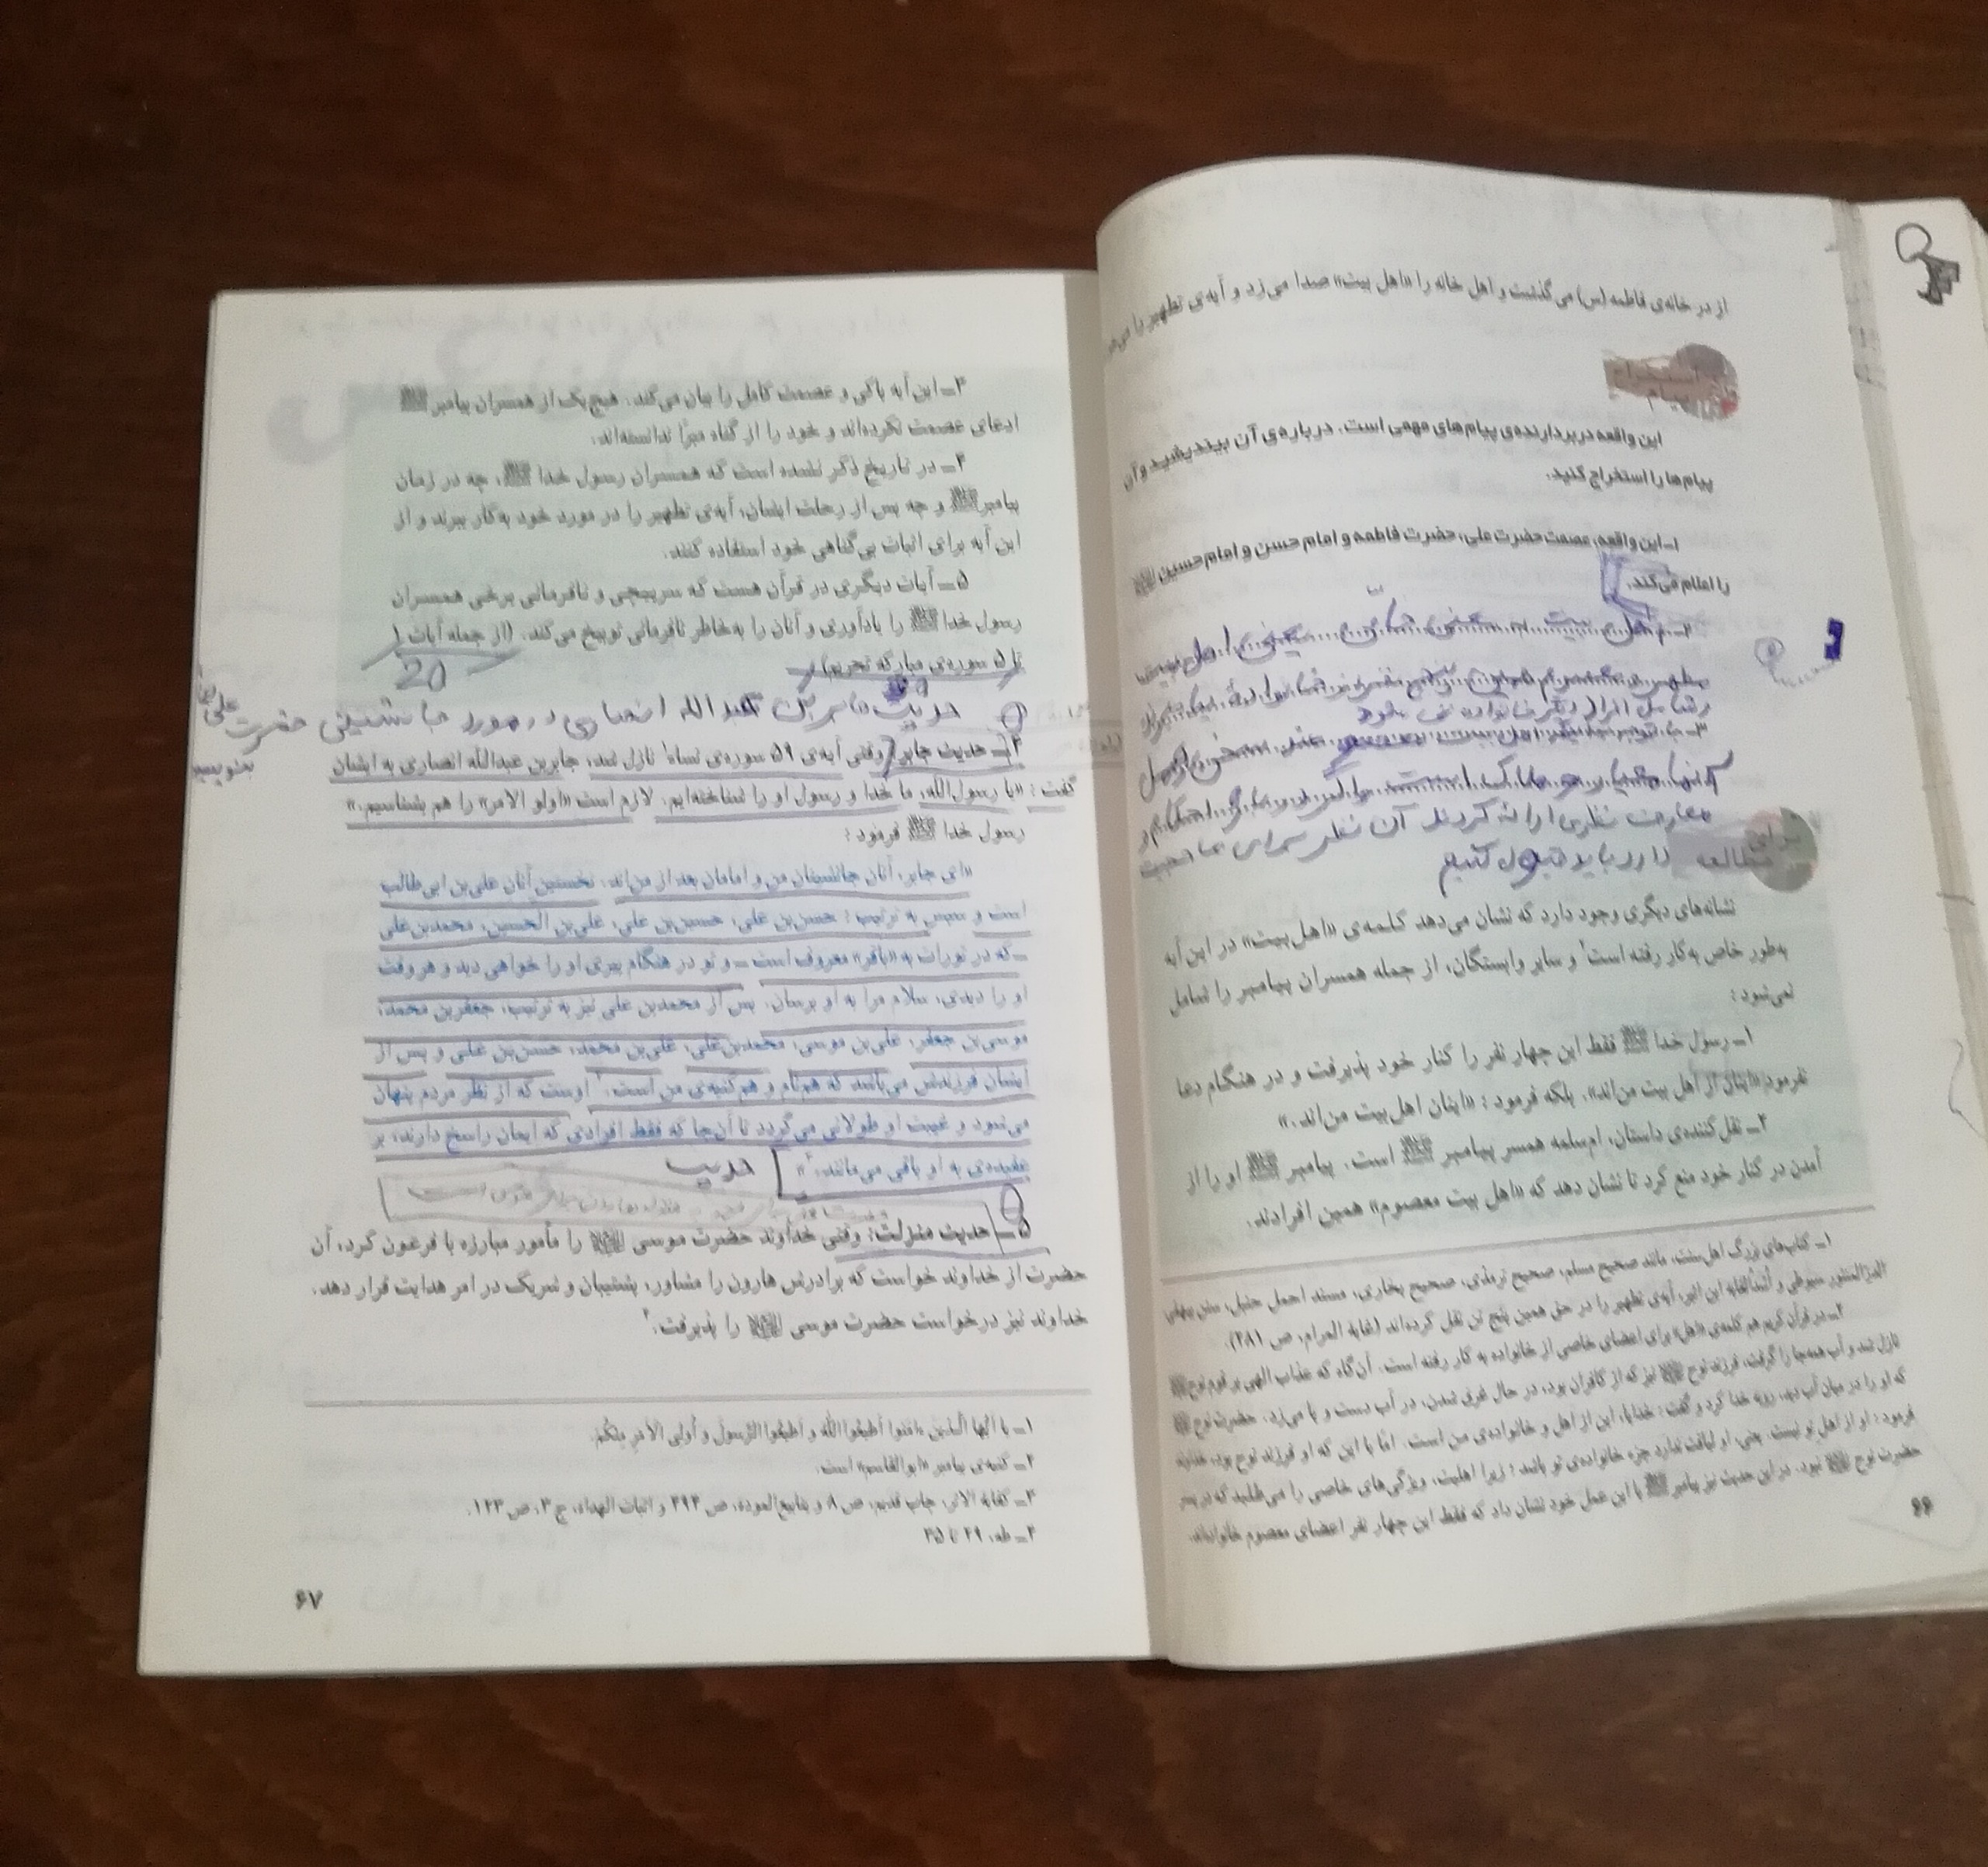 از در خانه‌ی فاطمه (س) می گذشت و اهل خانه را «اهل بیت» صدا می زد و آیه‌ی تطهیر را
استخراج
پیام
این واقعه دربردارنده‌ی پیام های مهمی است. درباره‌ی آن بیندیشید و آن
پیام ها را استخراج کنید.
۱ــ این واقعه، عصمت حضرت علی، حضرت فاطمه و امام حسن و امام حسین
را اعلام می کند.
۲ــ اهل بیت یعنی یعنی اهل بیت
شامل افراد دیگر خانواده نمی شود
معارف نظری ارائه کردند آن نظر برای ما حجیت
دارد باید قبول کنیم
برای
مطالعه
نشانه‌های دیگری وجود دارد که نشان می‌دهد کلمه‌ی «اهل بیت» در این آیه
به‌طور خاص به‌کار رفته است۲ و سایر وابستگان، از جمله همسران پیامبر را شامل
نمی‌شود:
۱ــ رسول خدا ﷺ فقط این چهار نفر را کنار خود پذیرفت و در هنگام دعا
نفرمود «اینان از اهل بیت من‌اند»، بلکه فرمود: «اینان اهل بیت من‌اند.»
۲ــ نقل کننده‌ی داستان، ام‌سلمه همسر پیامبر ﷺ است. پیامبر ﷺ او را از
آمدن در کنار خود منع کرد تا نشان دهد که «اهل بیت معصوم» همین افرادند.
۱ــ کتاب‌های بزرگ اهل‌سنت، مانند صحیح مسلم، صحیح ترمذی، صحیح بخاری، مسند احمد حنبل، سنن بیهقی
الدرالمنثور سیوطی و اسدالغابه ابن اثیر، آیه‌ی تطهیر را در حق همین پنج تن نقل کرده‌اند (غایة المرام، ص ۲۸۱).
۲ــ در قرآن کریم هم کلمه‌ی «اهل» برای اعضای خاصی از خانواده به کار رفته است. آن‌گاه که عذاب الهی بر قوم نوح
نازل شد و آب همه‌جا را گرفت، فرزند نوح نیز که از کافران بود، در حال غرق شدن، در آب دست و پا می‌زد. حضرت نوح
که او را در میان آب دید، رو به خدا کرد و گفت: خدایا، این از اهل و خانواده‌ی من است. اما با این که او فرزند نوح بود، خداوند
فرمود: او از اهل تو نیست. یعنی، او لیاقت ندارد جزء خانواده‌ی تو باشد؛ زیرا اهلیت، ویژگی‌های خاصی را می‌طلبد که در پسر
حضرت نوح نبود. در این حدیث نیز پیامبر ﷺ با این عمل خود نشان داد که فقط این چهار نفر اعضای معصوم خانواده‌اند.
۶۶
۳ــ این آیه پاکی و عصمت کامل را بیان می‌کند. هیچ یک از همسران پیامبر ﷺ
ادعای عصمت نکرده‌اند و خود را از گناه مبرّا ندانسته‌اند.
۴ــ در تاریخ ذکر نشده است که همسران رسول خدا ﷺ، چه در زمان
پیامبر ﷺ و چه پس از رحلت ایشان، آیه‌ی تطهیر را در مورد خود به‌کار ببرند و از
این آیه برای اثبات بی‌گناهی خود استفاده کنند.
۵ــ آیات دیگری در قرآن هست که سرپیچی و نافرمانی برخی همسران
رسول خدا ﷺ را یادآوری و آنان را به‌خاطر نافرمانی توبیخ می‌کند. (از جمله آیات ۱
تا ۵ سوره‌ی مبارکه تحریم)
20
حدیث جابر بن عبدالله انصاری در مورد جانشینی حضرت علی
بنویسید
۴ــ حدیث جابر: وقتی آیه‌ی ۵۹ سوره‌ی نساء۱ نازل شد، جابربن عبدالله انصاری به ایشان
گفت: «یا رسول‌الله، ما خدا و رسول او را شناخته‌ایم. لازم است «اولو الامر» را هم بشناسیم.»
رسول خدا ﷺ فرمود:
«ای جابر، آنان جانشینان من و امامان بعد از من‌اند. نخستین آنان علی‌بن ابی‌طالب
است و سپس به ترتیب: حسن‌بن علی، حسین‌بن علی، علی‌بن الحسین، محمدبن‌علی
ــ که در تورات به «باقر» معروف است ــ و تو در هنگام پیری او را خواهی دید و هر وقت
او را دیدی، سلام مرا به او برسان. پس از محمدبن علی نیز به ترتیب، جعفربن محمد،
موسی‌بن جعفر، علی‌بن موسی، محمدبن‌علی، علی‌بن محمد، حسن‌بن علی و پس از
ایشان فرزندش می‌باشد که هم‌نام و هم‌کنیه‌ی من است.۲ اوست که از نظر مردم پنهان
می‌شود و غیبت او طولانی می‌گردد تا آن‌جا که فقط افرادی که ایمان راسخ دارند، بر
عقیده‌ی به او باقی می‌مانند.۳»
حدیث
۵ــ حدیث منزلت: وقتی خداوند حضرت موسی را مأمور مبارزه با فرعون کرد، آن
حضرت از خداوند خواست که برادرش هارون را مشاور، پشتیبان و شریک در امر هدایت قرار دهد.
خداوند نیز درخواست حضرت موسی را پذیرفت.۴
۱ــ یا اَیُّها الَّذینَ ءامَنوا اَطیعُوا اللهَ وَ اَطیعُوا الرَّسولَ وَ اُولِی الاَمرِ مِنکُم.
۲ــ کنیه‌ی پیامبر «ابوالقاسم» است.
۳ــ کفایة الاثر، چاپ قدیم، ص ۸ و ینابیع‌الموده، ص ۴۹۴ و اثبات الهداة، ج ۳، ص ۱۲۳.
۴ــ طه، ۲۹ تا ۳۵
۶۷